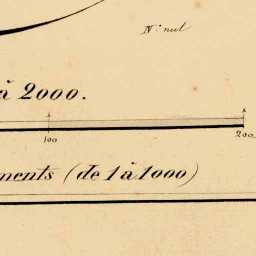 à 2000.
100
200
ments (de 1 à 1000)